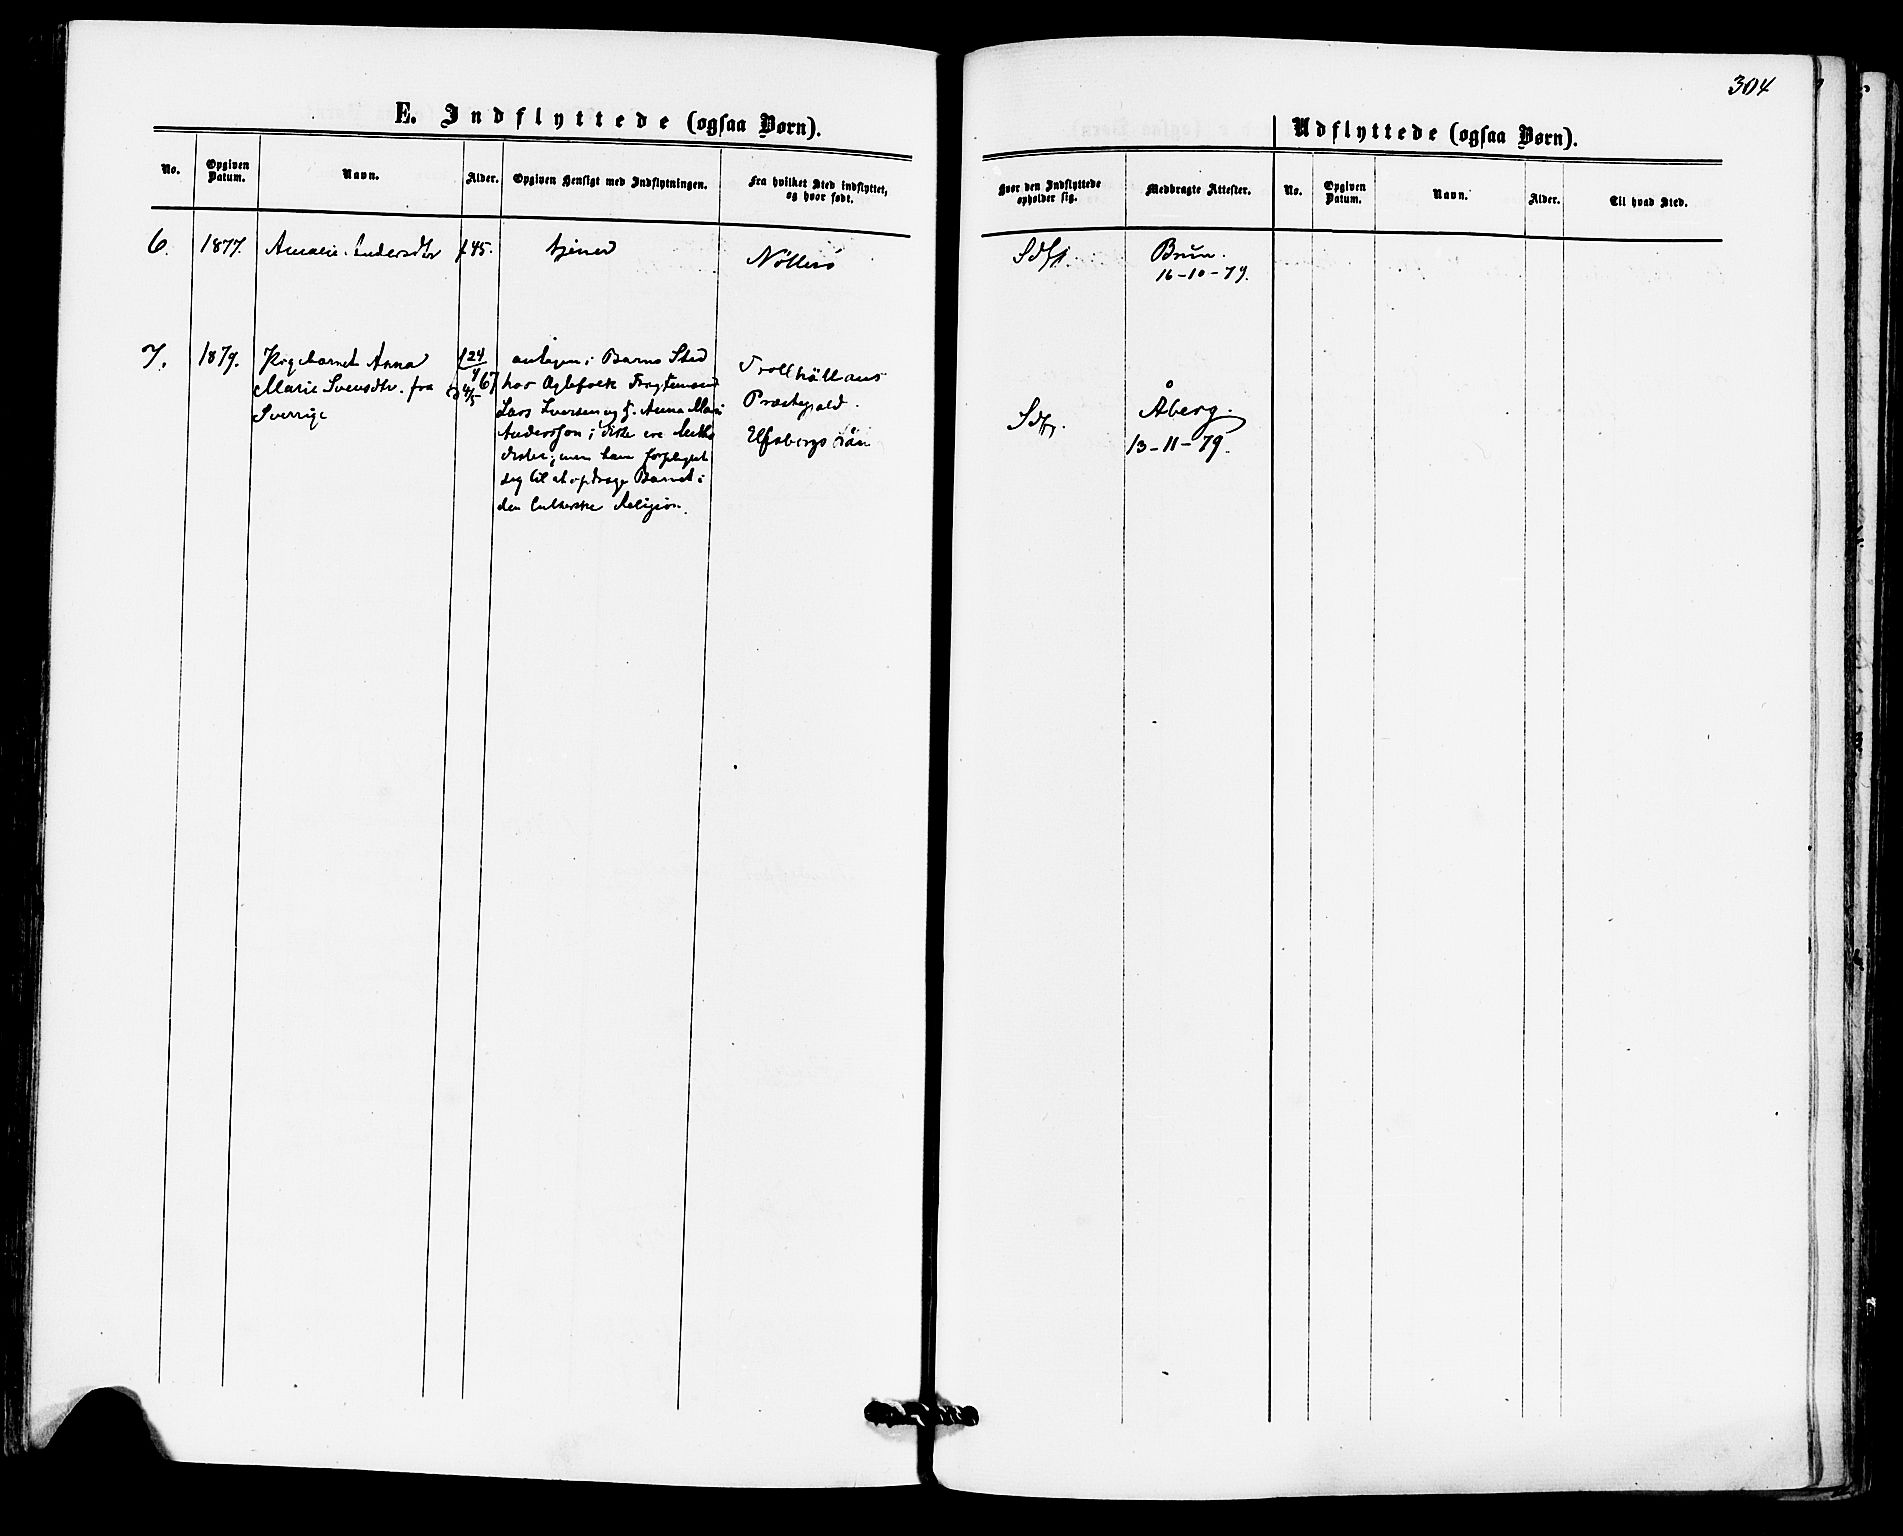 304
E. Indflyttede (ogsaa Børn).
No.
Opgiven Datum.
Navn.
Alder.
Opgiven Hensigt med Indflytningen.
Fra hvilket Sted indflyttet, og hvor født.
Udflyttede (ogsaa Børn).
Hvor den Indflyttede opholder sig.
Medbragte Attester.
No.
Opgiven Datum.
Navn.
Alder.
Til hvad Sted.
6.
1877.
Amalie Andersdtr
f 45.
tjener
Nøtterø
Brun.
16-10-79.
7.
1879.
Pigebarnet Anna
Marie Svensdtr. fra
Sverrige
f 24
4 67
antagen i Barns Sted
hos Fragtemand
Lars Iversen og H. Anna Marie
Andersson; disse ere Metho
dister; men have forpligtet
sig til at opdrage Barnet i
den lutherske Religion.
Trollhättans
Præstegjeld.
Elfsborgs län
Åberg.
13-11-79.